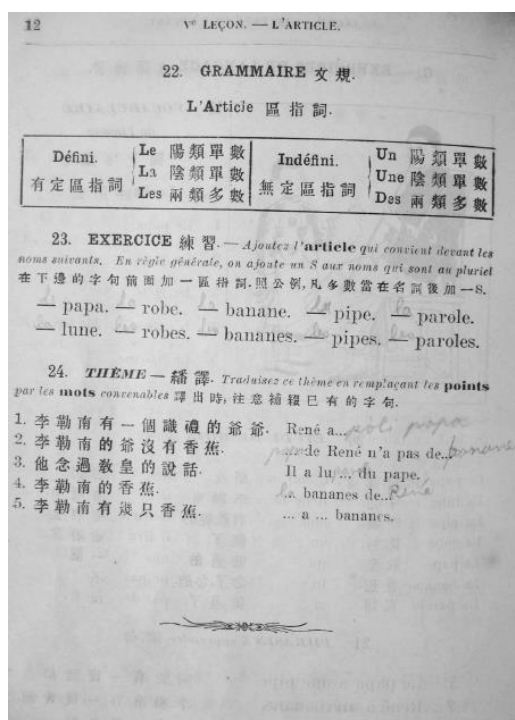 12
Vᵉ LEÇON. — L'ARTICLE.
22. GRAMMAIRE 文規.
L'Article 區指詞.
Défini.
有定區指詞
Le 陽類單數
La 陰類單數
Les 兩類多數
Indéfini.
無定區指詞
Un 陽類單數
Une 陰類單數
Des 兩類多數
23. EXERCICE 練習. — Ajoutez l'article qui convient devant les
noms suivants. En règle générale, on ajoute un S aux noms qui sont au pluriel
在下邊的字句前面加一區指詞. 照公例, 凡多數當在名詞後加一S.
— papa. — robe. — banane. — pipe. — parole.
— lune. — robes. — bananes. — pipes. — paroles.
24. THÈME — 繙譯. Traduisez ce thème en remplaçant les points
par les mots convenables 譯出時, 注意補綴已有的字句.
1. 李勒南有一個識禮的爺爺. René a... poli papa
2. 李勒南的爺沒有香蕉. ...de René n'a pas de.. banane
3. 他念過教皇的說話. Il a lu ... du pape.
4. 李勒南的香蕉. ... bananes de.. René
5. 李勒南有幾只香蕉. ... a ... bananes.